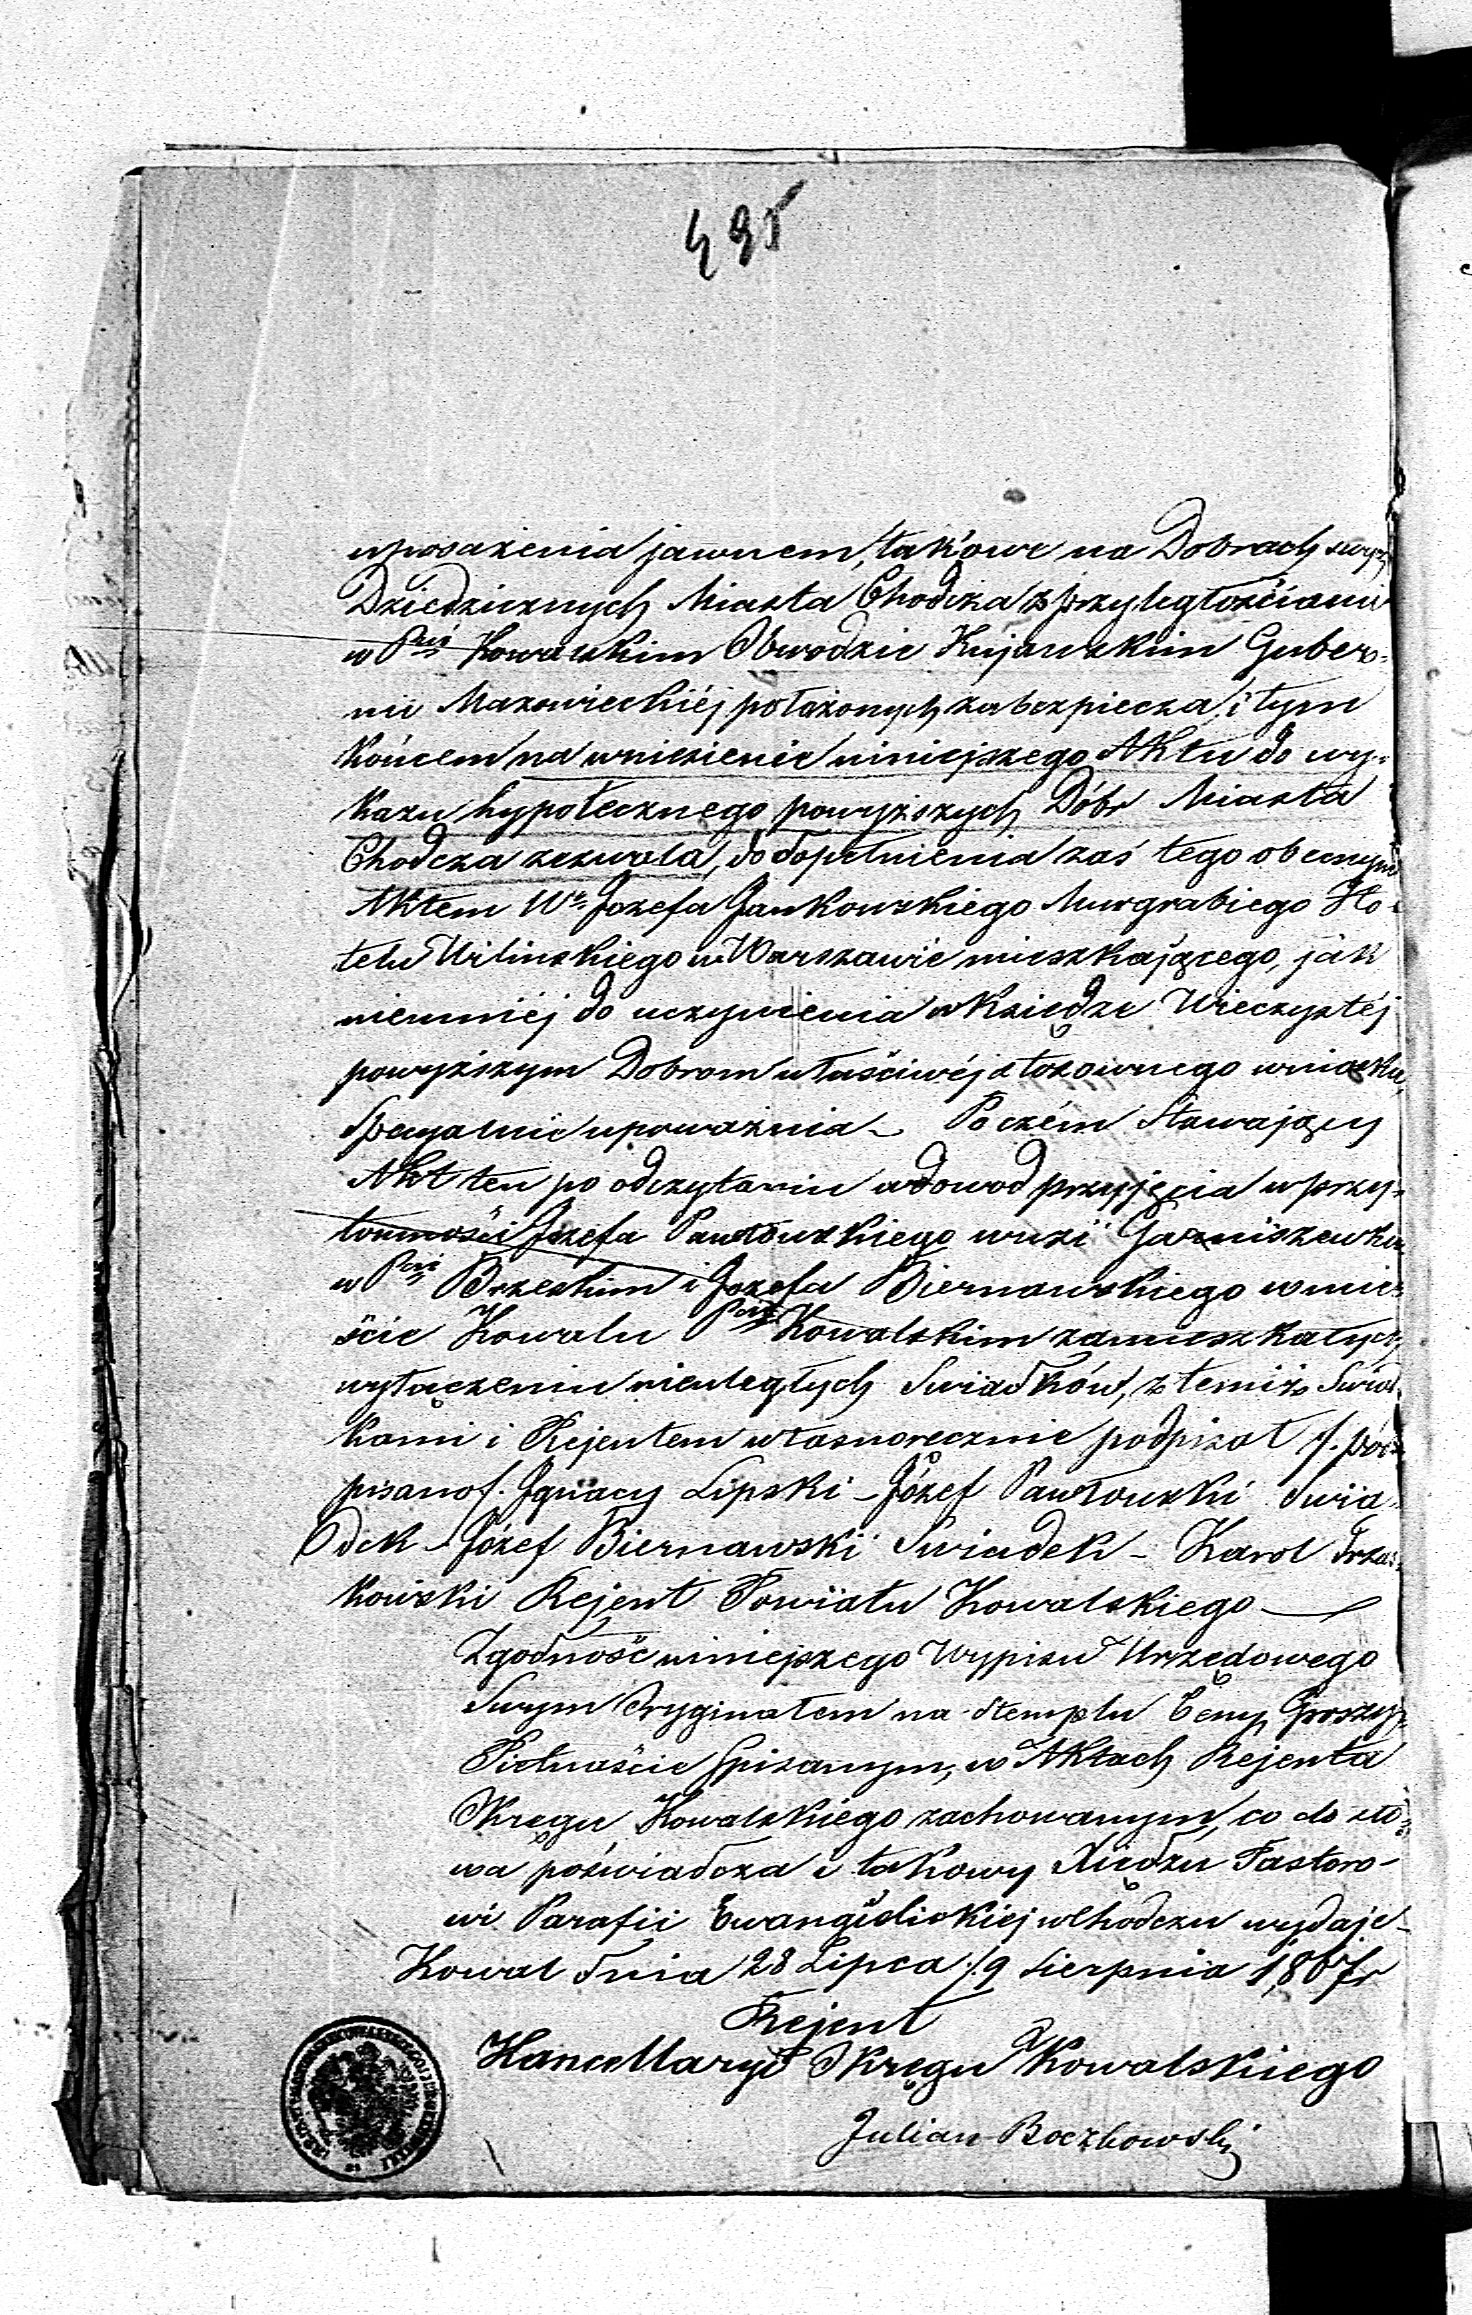 495
uposażenia jawnem, takowe na Dobrach swych
Dziedzicznych Miasta Chodcza z przyległościami
w Pcie Kowalskim Obwodzie Kujawskim Guber=
nii Mazowieckiéj położonych zabezpiecza, i tym
końcem na wniesienie niniejszego Aktu do wy=
kazu hypotecznego powyższych Dóbr Miasta
Chodcza zezwala, do dopełnienia zaś tego obecnym
Aktem Wo Jozefa Jankowskiego Murgrabiego Ho=
telu Wilinskiego w Warszawie mieszkającego, jak
niemniéj do uczynienia w Księdze Wieczystéj
powyższym Dobrom właściwéj stosownego wniosku,
Specyalnie upoważnia – Poczém Stawający
Akt ten po odczytaniu w dowod przyjęcia w przy=
tomności Jozefa Pawłowskiego w wsi
w Pcie Brzeskim i Jozefa Biernawskiego w mie=
ście Kowalu Pcie Kowalskim zamieszkałych
wyłączeniu nieuległych Swiadków, z temiż Swiad=
kami i Rejentem własnorecznie podpisał /. pod=
pisano /. Ignacy Lipski – Józef Pawłowski Swia=
dek – Józef Biernawski Swiadek – Karol Trza=
kowski Rejent Powiatu Kowalskiego –
Zgodność niniejszego Wypisu Urzędowego
Swym Oryginałem na stemplu Ceny Groszy
Piętnaście spisanym, w Aktach Rejenta
Okręgu Kowalskiego zachowanym, co do sło=
wa poświadcza i takowy Xiędzu Pastoro=
wi Parafii Ewangielickiej w Chodczu wydaje –
Kowal dnia 28 Lipca /. 9 Sierpnia 1867 r
Rejent
Kancellaryi Okręgu Kowalskiego
Julian Boczkowski